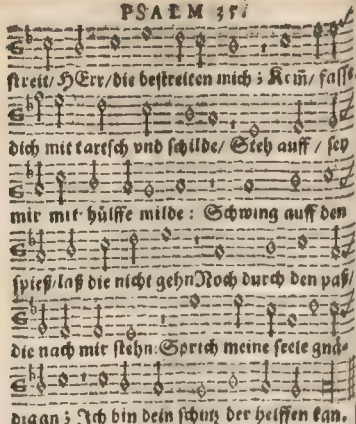 PSALM 35.
streit/ HErr/ die bestreiten mich ; Kom̃/ fasse
dich mit tartsch vnd schilde/ Steh auff / sey
mir mit hülffe milde : Schwing auff den
spieß/ laß die nicht gehn Noch durch den paß/
die nach mir stehn: Sprich meine seele gnä-
digan ; Ich bin dein schutz der helffen kan.